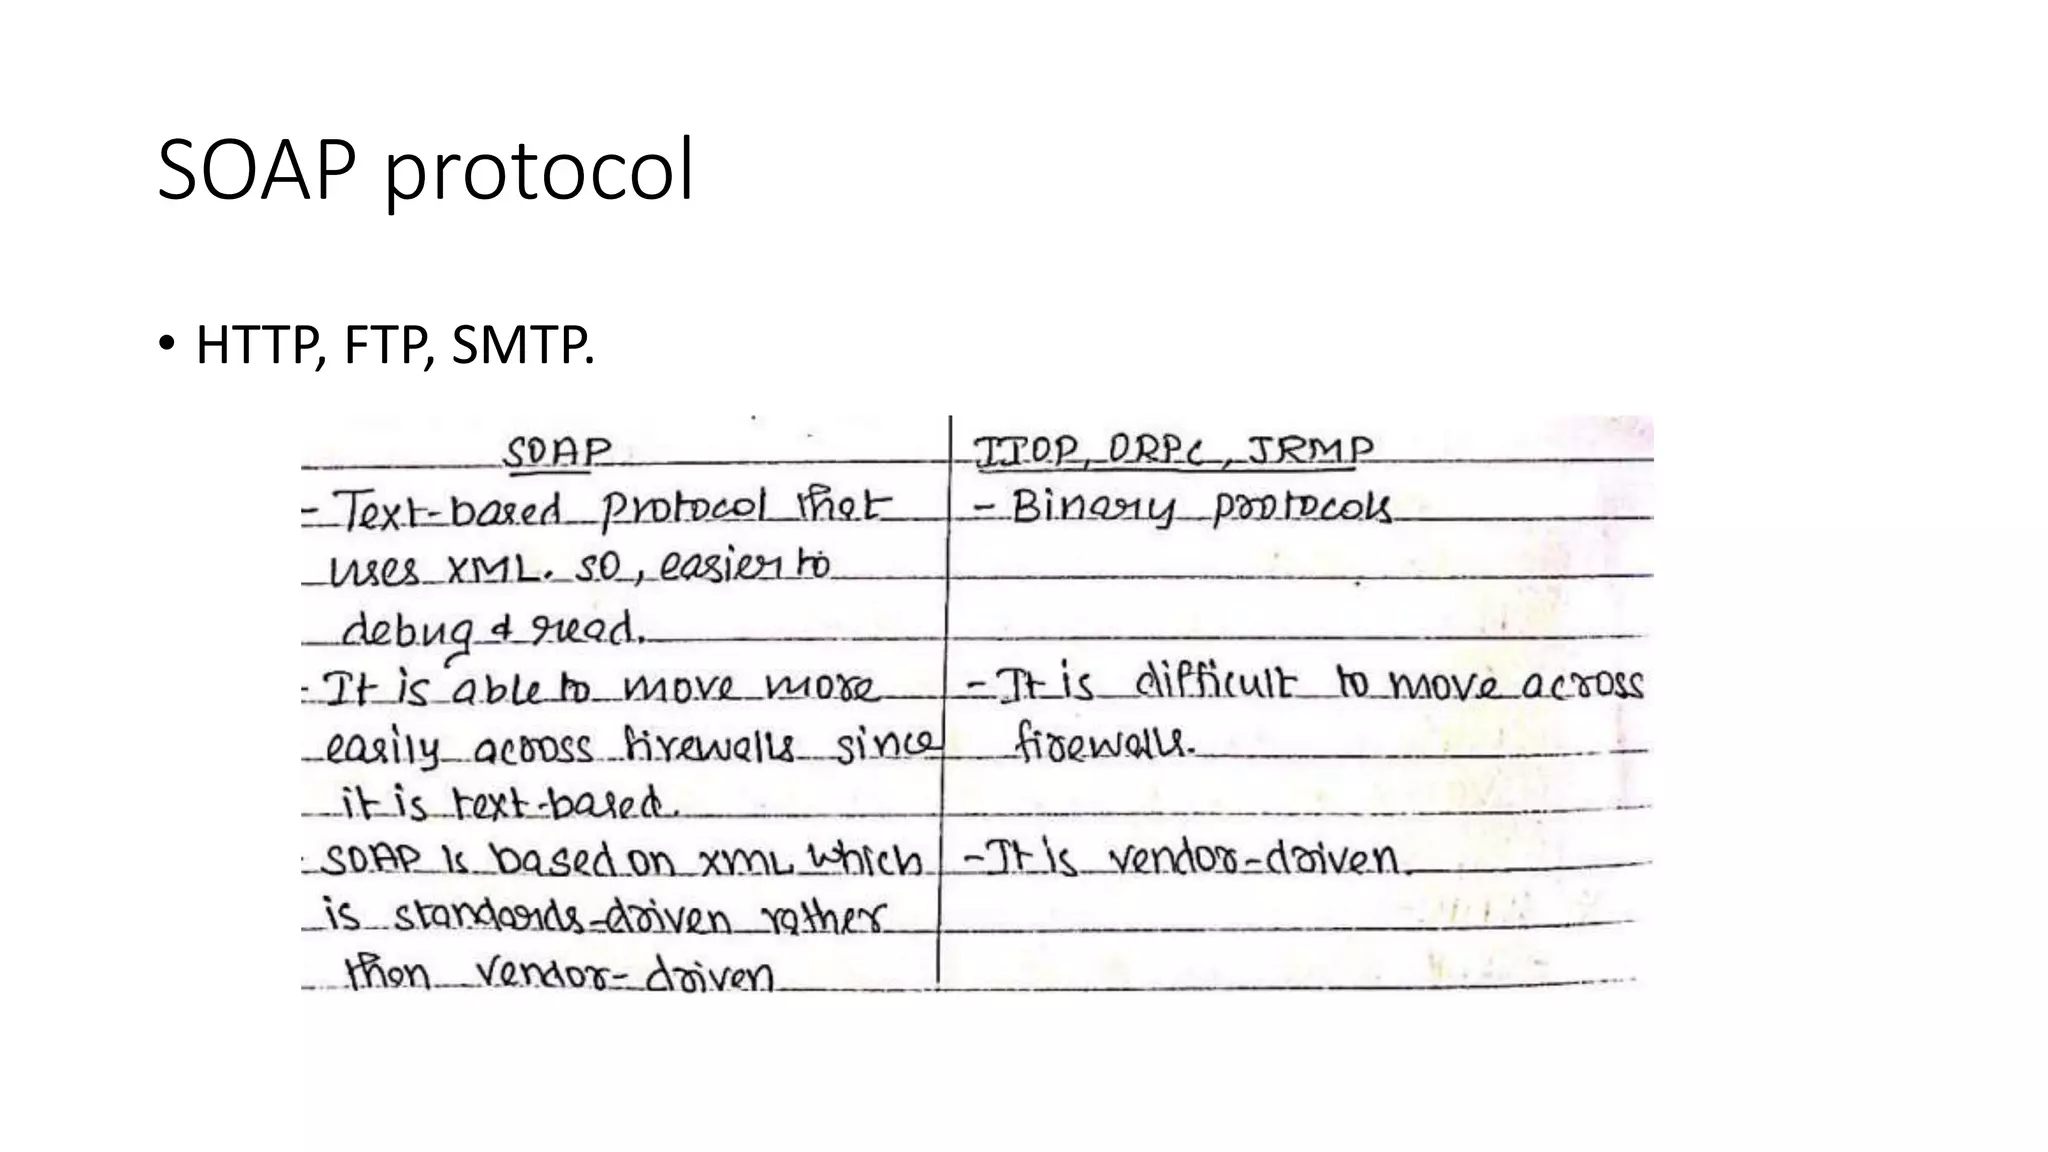 SOAP protocol
• HTTP, FTP, SMTP.
SOAP
- Text-based protocol that
uses XML. so, easier to
debug & read.
- It is able to move more
easily across firewalls since
it is text-based.
- SOAP is based on XML which
is standards-driven rather
than vendor-driven
IIOP, ORPC, JRMP
- Binary protocols
- It is difficult to move across
firewalls.
- It is vendor-driven.